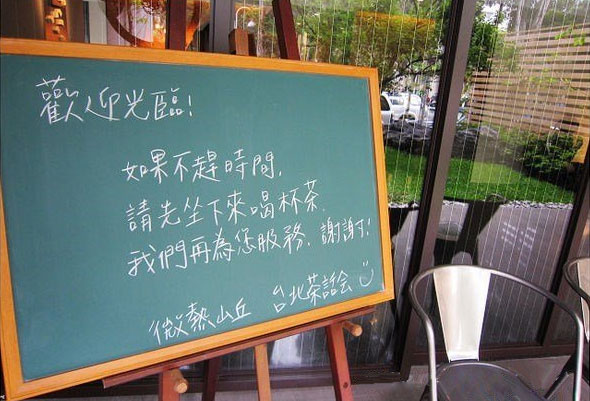 歡迎光臨!
如果不趕時間,
請先坐下來喝杯茶、
我們再為您服務、謝謝!
微熱山丘 台北茶話会